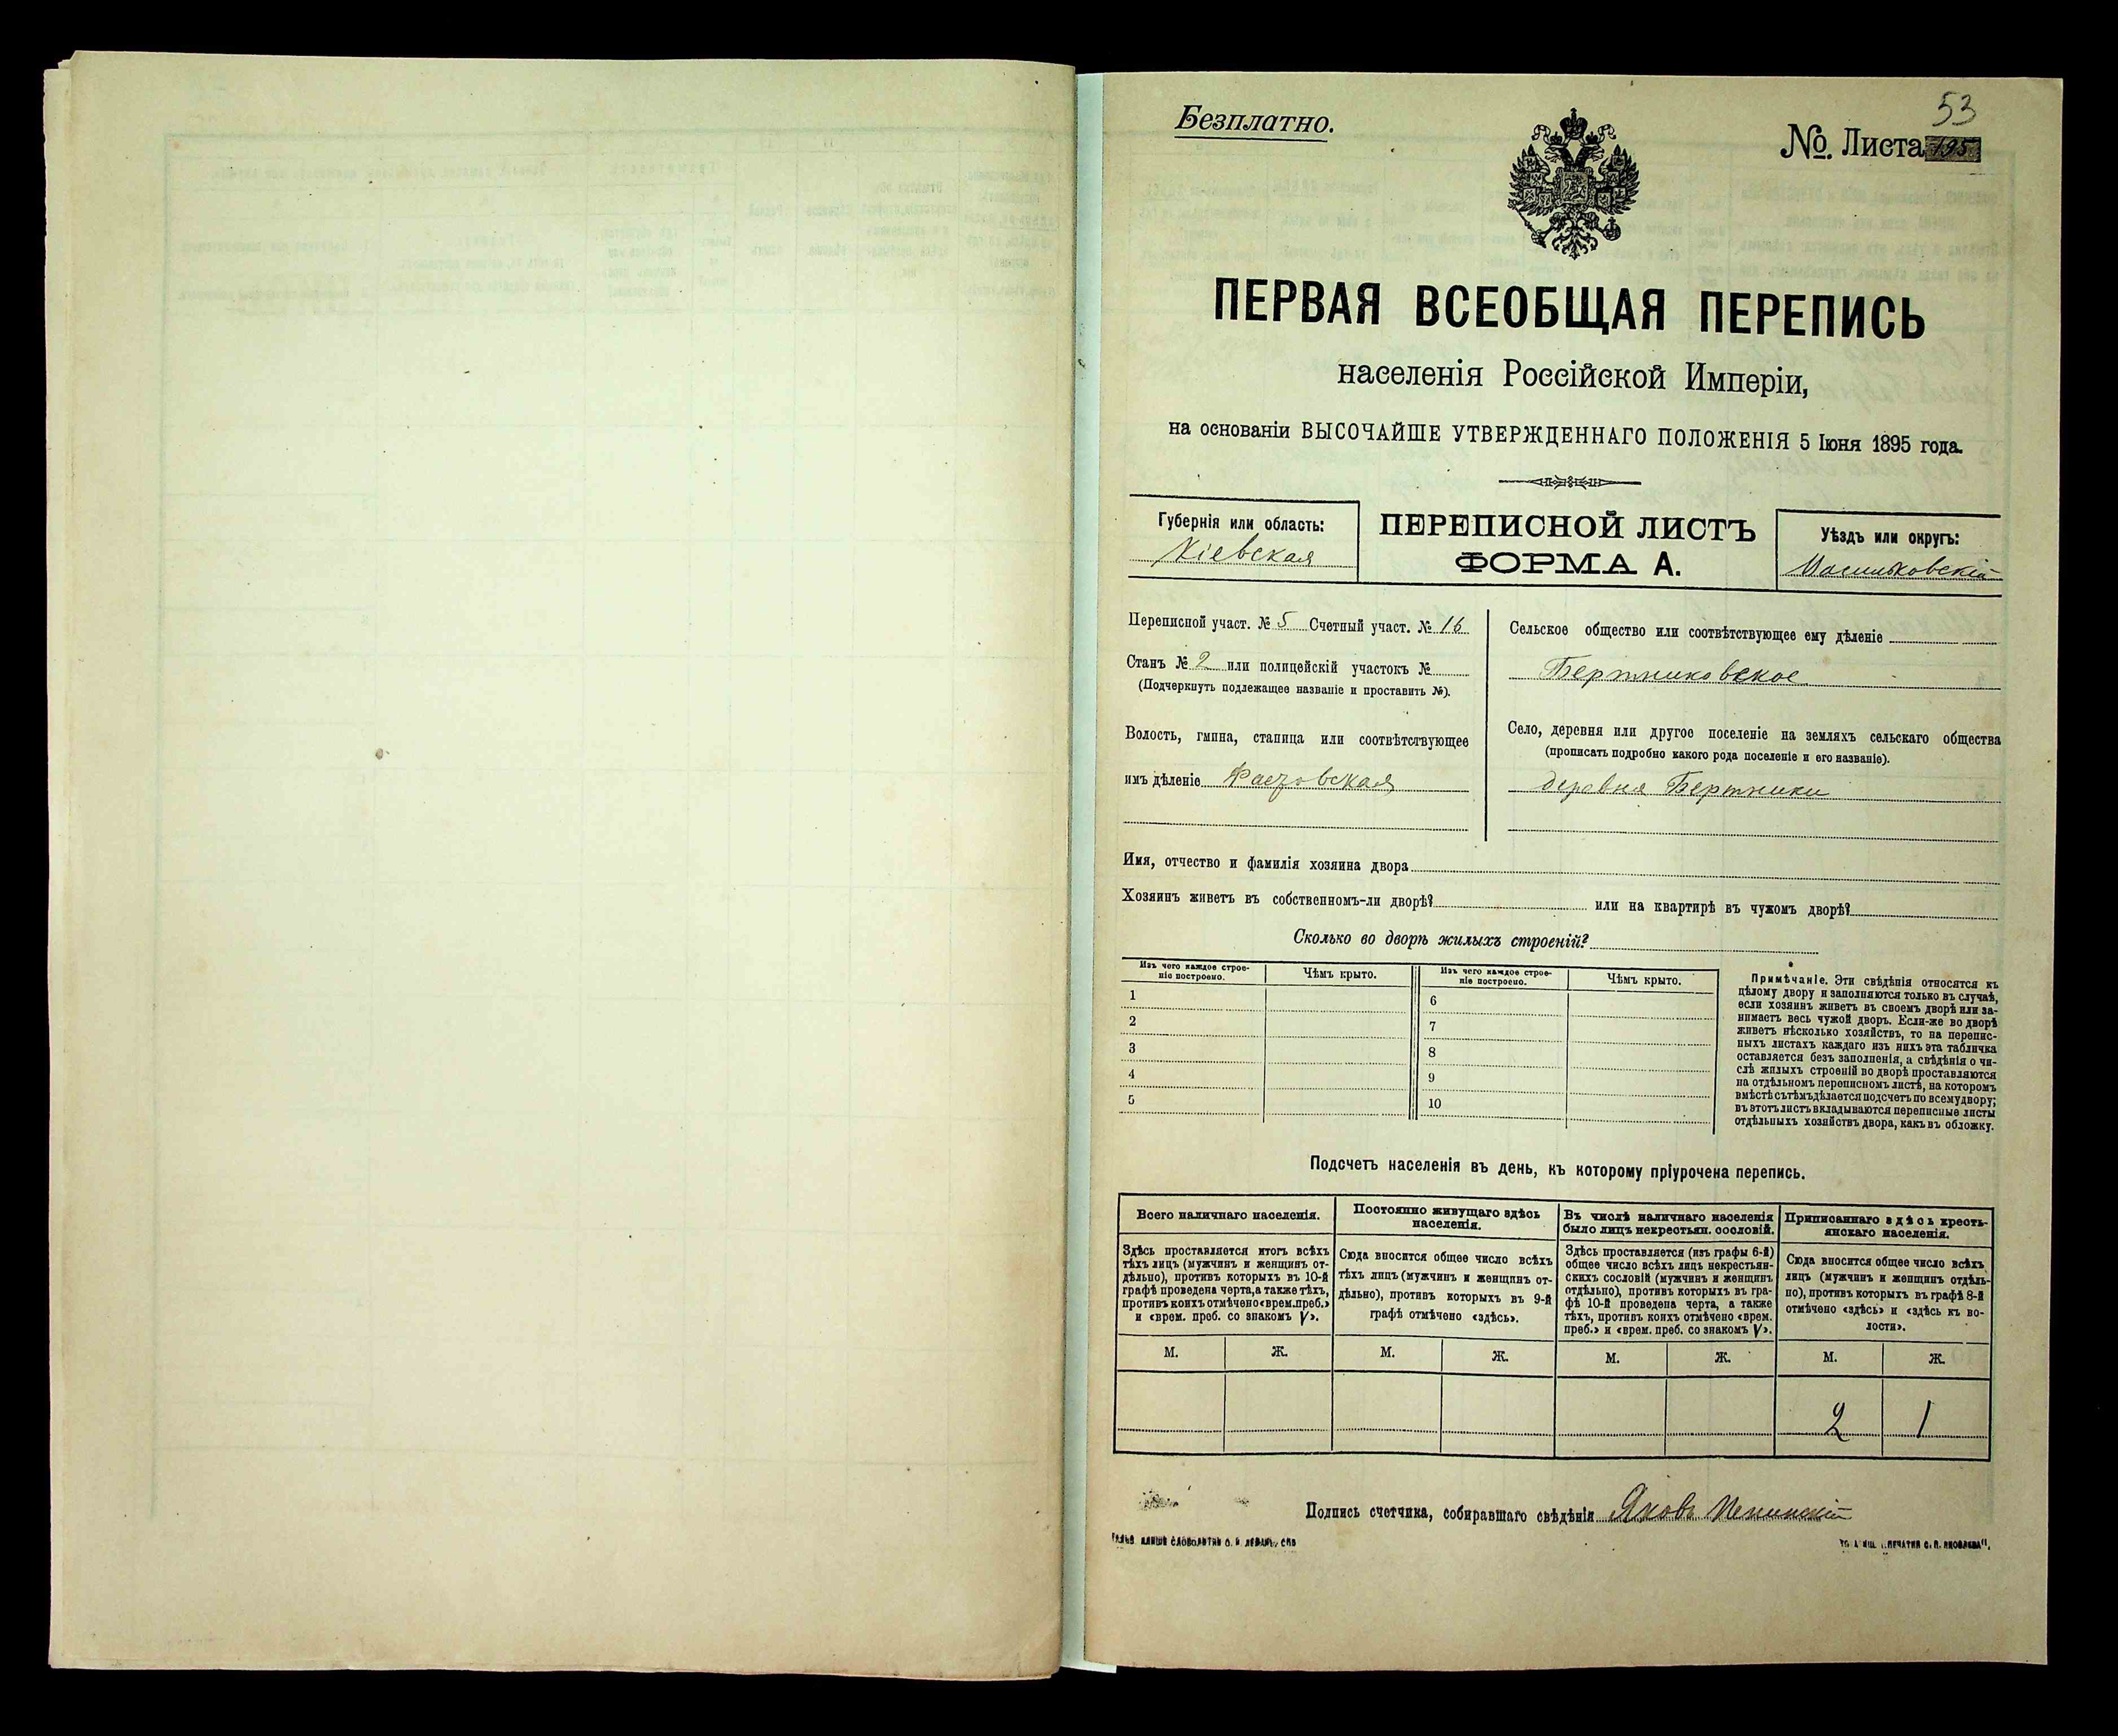 Безплатно.
53
№. Листа 195
ПЕРВАЯ ВСЕОБЩАЯ ПЕРЕПИСЬ
населенія Россійской Имперіи,
на основаніи ВЫСОЧАЙШЕ УТВЕРЖДЕННАГО ПОЛОЖЕНІЯ 5 Іюня 1895 года.
Губернія или область:
Кіевская
ПЕРЕПИСНОЙ ЛИСТЪ
ФОРМА А.
Уѣздъ или округъ:
Васильковскій
Переписной участ. № 5 Счетный участ. № 16
Станъ № 2 или полицейскій участокъ №
(Подчеркнуть подлежащее названіе и проставить №).
Волость, гмина, станица или соотвѣтствующее
имъ дѣленіе Фастовская
Сельское общество или соотвѣтствующее ему дѣленіе
Бертниковское
Село, деревня или другое поселеніе на земляхъ сельскаго общества
(прописать подробно какого рода поселеніе и его названіе).
деревня Бертники
Имя, отчество и фамилія хозяина двора
Хозяинъ живетъ въ собственномъ-ли дворѣ? или на квартирѣ въ чужомъ дворѣ?
Сколько во дворѣ жилыхъ строеній?
Изъ чего каждое строе-
ніе построено.
Чѣмъ крыто.
Изъ чего каждое строе-
ніе построено.
Чѣмъ крыто.
1 6
2 7
3 8
4 9
5 10
Примѣчаніе. Эти свѣдѣнія относятся къ
цѣлому двору и заполняются только въ случаѣ,
если хозяинъ живетъ въ своемъ дворѣ или за-
нимаетъ весь чужой дворъ. Если-же во дворѣ
живетъ нѣсколько хозяйствъ, то на перепис-
ныхъ листахъ каждаго изъ нихъ эта табличка
оставляется безъ заполненія, а свѣдѣнія о чи-
слѣ жилыхъ строеній во дворѣ проставляются
на отдѣльномъ переписномъ листѣ, на которомъ
вмѣстѣ съ тѣмъ дѣлается подсчетъ по всему двору;
въ этотъ листъ вкладываются переписные листы
отдѣльныхъ хозяйствъ двора, какъ въ обложку.
Подсчетъ населенія въ день, къ которому пріурочена перепись.
Всего наличнаго населенія.
Здѣсь проставляется итогъ всѣхъ
тѣхъ лицъ (мужчинъ и женщинъ от-
дѣльно), противъ которыхъ въ 10-й
графѣ проведена черта, а также тѣхъ,
противъ коихъ отмѣчено «врем. преб.»
и «врем. преб. со знакомъ V».
Постоянно живущаго здѣсь
населенія.
Сюда вносится общее число всѣхъ
тѣхъ лицъ (мужчинъ и женщинъ от-
дѣльно), противъ которыхъ въ 9-й
графѣ отмѣчено «здѣсь».
Въ числѣ наличнаго населенія
было лицъ некрестьян. сословій.
Здѣсь проставляется (изъ графы 6-й)
общее число всѣхъ лицъ некрестьян-
скихъ сословій (мужчинъ и женщинъ
отдѣльно), противъ которыхъ въ гра-
фѣ 10-й проведена черта, а также
тѣхъ, противъ коихъ отмѣчено «врем.
преб.» и «врем. преб. со знакомъ V».
Приписаннаго здѣсь кресть-
янскаго населенія.
Сюда вносится общее число всѣхъ
лицъ (мужчинъ и женщинъ отдѣль-
но), противъ которыхъ въ графѣ 8-й
отмѣчено «здѣсь» и «здѣсь къ во-
лости».
М. Ж. М. Ж. М. Ж. М. Ж.
2 1
Подпись счетчика, собиравшаго свѣдѣнія Яковъ